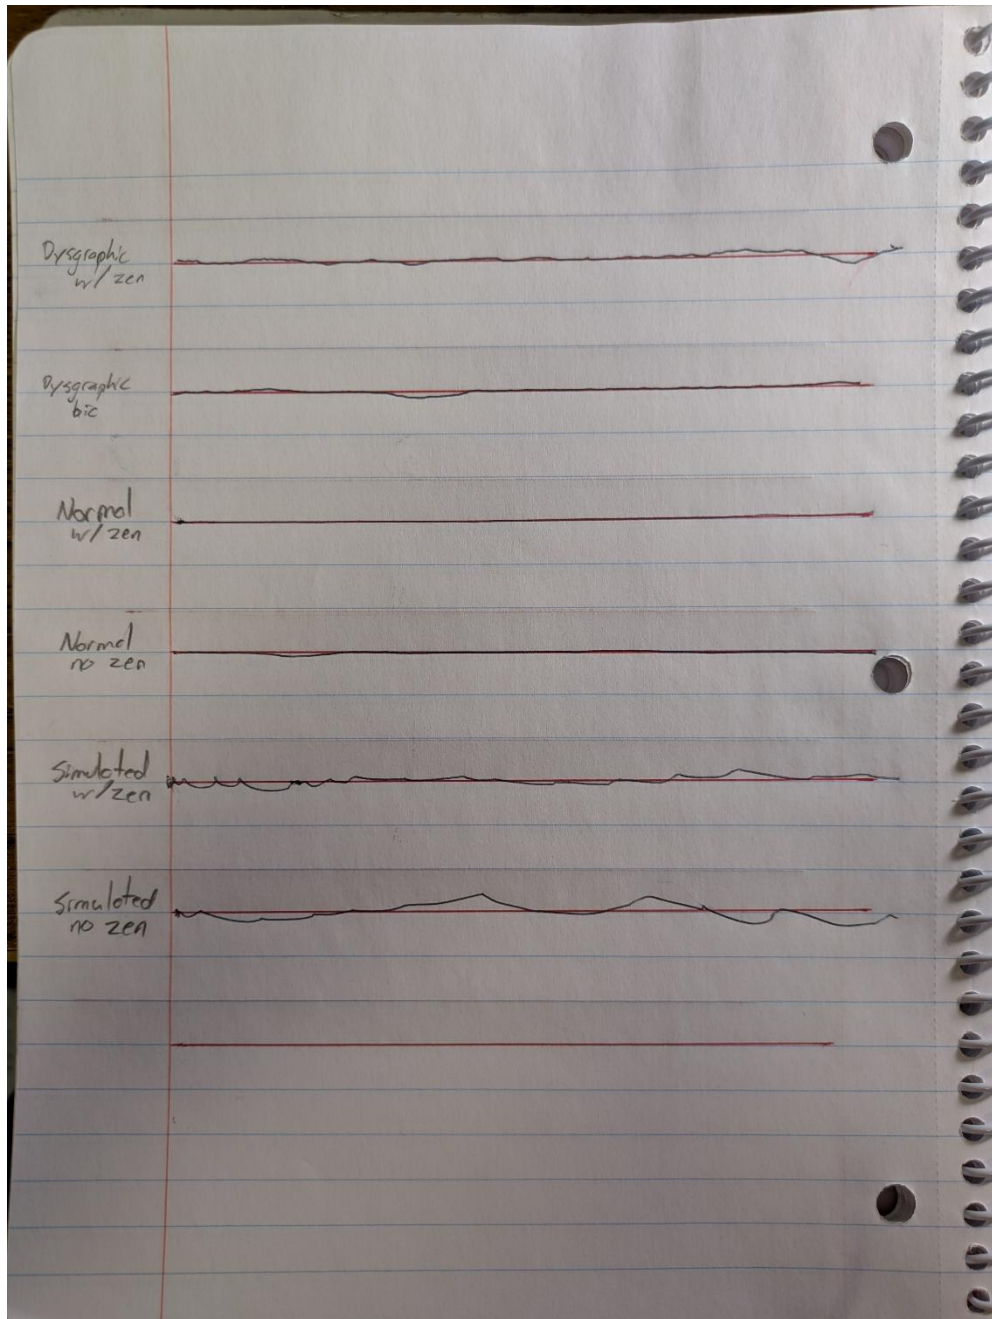 Dysgraphic
w/ zen
Dysgraphic
bic
Normal
w/ zen
Normal
no zen
Simulated
w/ zen
Simulated
no zen